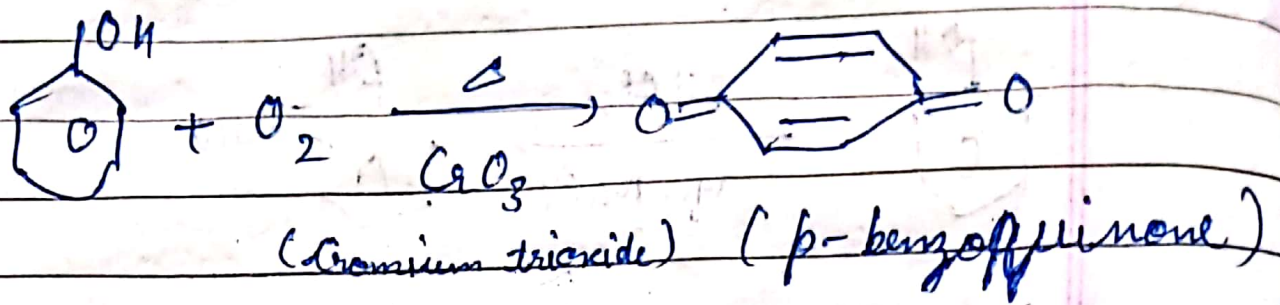 OH
+ O2 Δ O= =O
CrO3
(Cromium trioxide) (p-benzoquinone)